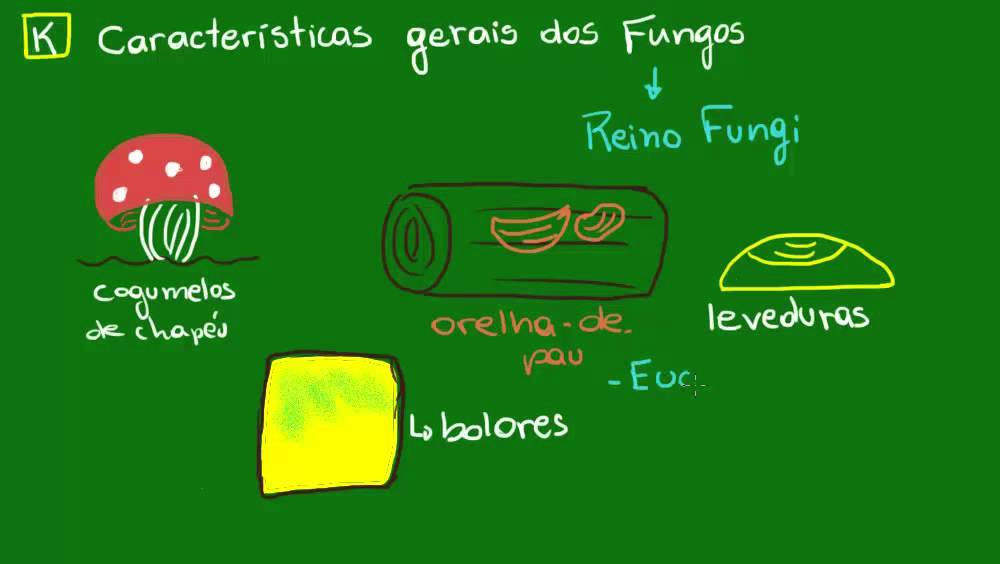 K Características gerais dos Fungos
Reino Fungi
cogumelos
de chapéu
orelha-de-
pau
leveduras
- Euc
bolores